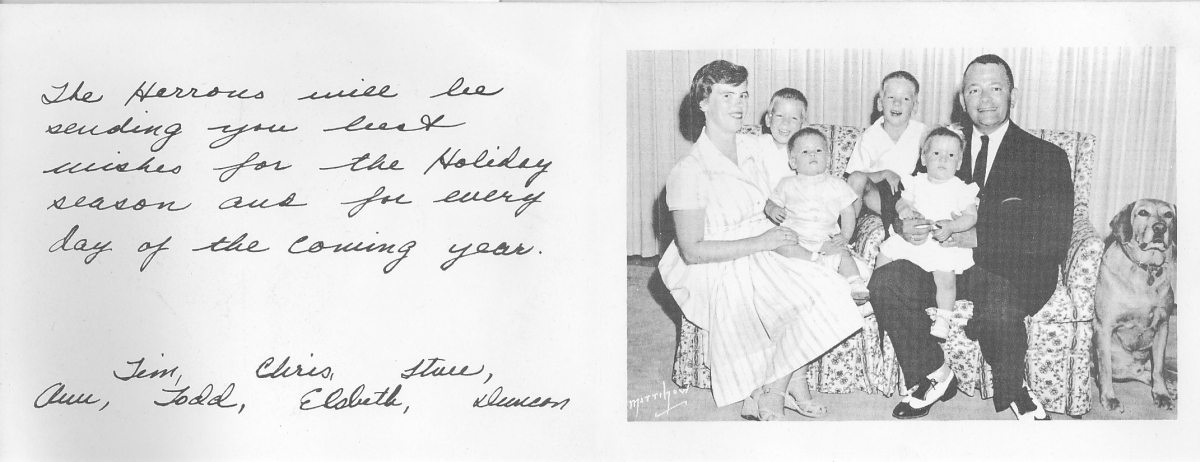 The Herrons will be
sending you best
wishes for the Holiday
season and for every
day of the coming year.
Tim, Chris,
Ann, Todd, Elsbeth, Duncan